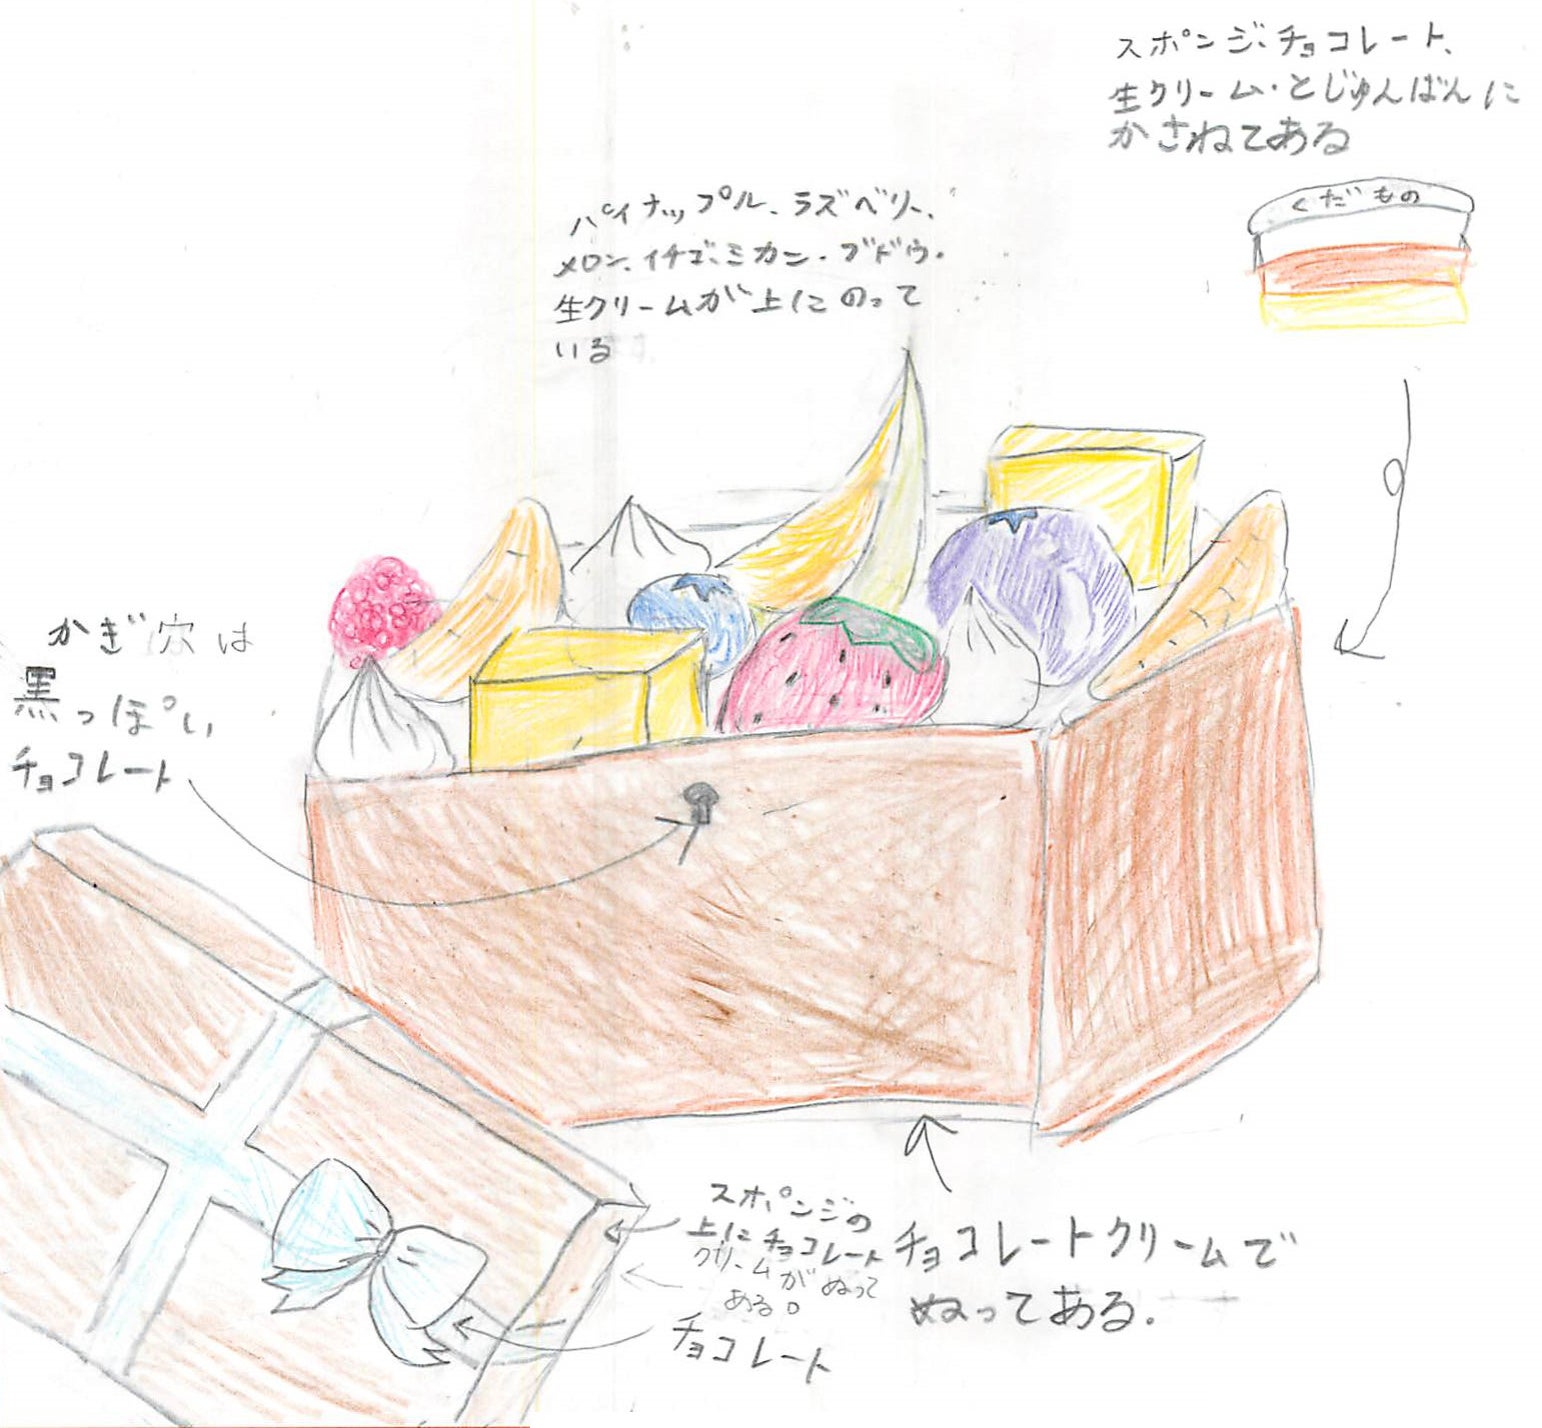 スポンジ、チョコレート、
生クリーム・とじゅんばんに
かさねてある
くだもの
パイナップル、ラズベリー、
メロン、イチゴ、ミカン、ブドウ、
生クリームが上にのって
いる
かぎ穴は
黒っぽい
チョコレート
スポンジの
上にチョコレート
クリームがぬって
ある。
チョコレート
チョコレートクリームで
ぬってある.